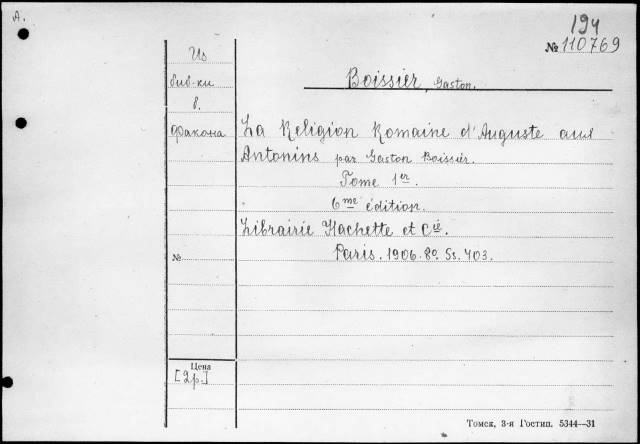 А.
194
№ 110769
Из
биб-ки
в.
Факона
Boissier, Gaston.
La Religion Romaine d'Auguste aux
Antonins par Gaston Boissier.
Tome 1er.
6me édition.
Librairie Hachette et Cie.
Paris. 1906. 8o. Ss. 403.
№
Цена
[2р.]
Томск, 3-я Гостип. 5344—31